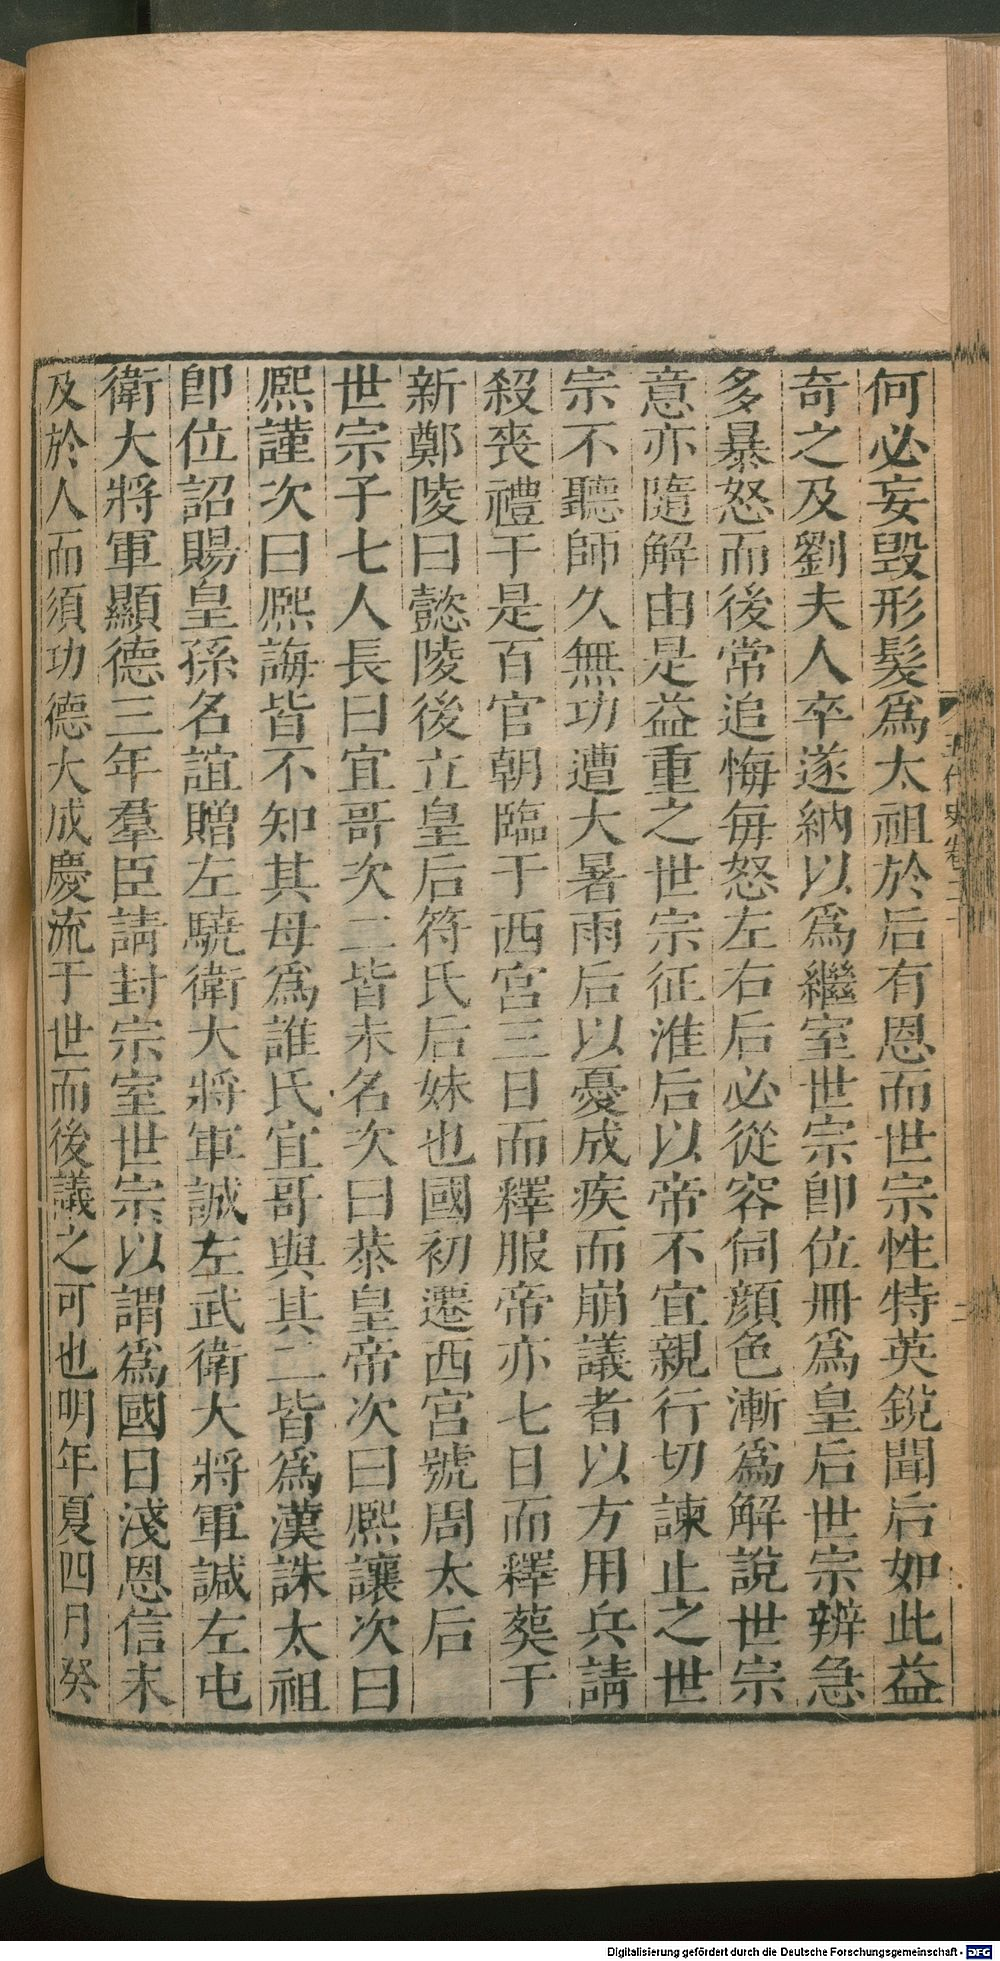 何必妄毀形髮爲太祖於后有恩而世宗性特英銳聞后如此益
奇之及劉夫人卒遂納以爲繼室世宗卽位冊爲皇后世宗辨急
多暴怒而後常追悔每怒左右后必從容伺顏色漸爲解說世宗
意亦隨解由是益重之世宗征淮后以帝不宜親行切諫止之世
宗不聽師久無功遭大暑雨后以憂成疾而崩議者以方用兵請
殺喪禮于是百官朝臨于西宮三日而釋服帝亦七日而釋葬于
新鄭陵曰懿陵後立皇后符氏后妹也國初遷西宮號周太后
世宗子七人長曰宜哥次二皆未名次曰恭皇帝次曰熙讓次曰
熙謹次曰熙誨皆不知其母爲誰氏宜哥與其二皆爲漢誅太祖
卽位詔賜皇孫名誼贈左驍衛大將軍誠左武衛大將軍諴左屯
衛大將軍顯德三年羣臣請封宗室世宗以謂爲國日淺恩信未
及於人而須功德大成慶流于世而後議之可也明年夏四月癸
五代史卷二十
二
Digitalisierung gefördert durch die Deutsche Forschungsgemeinschaft - DFG